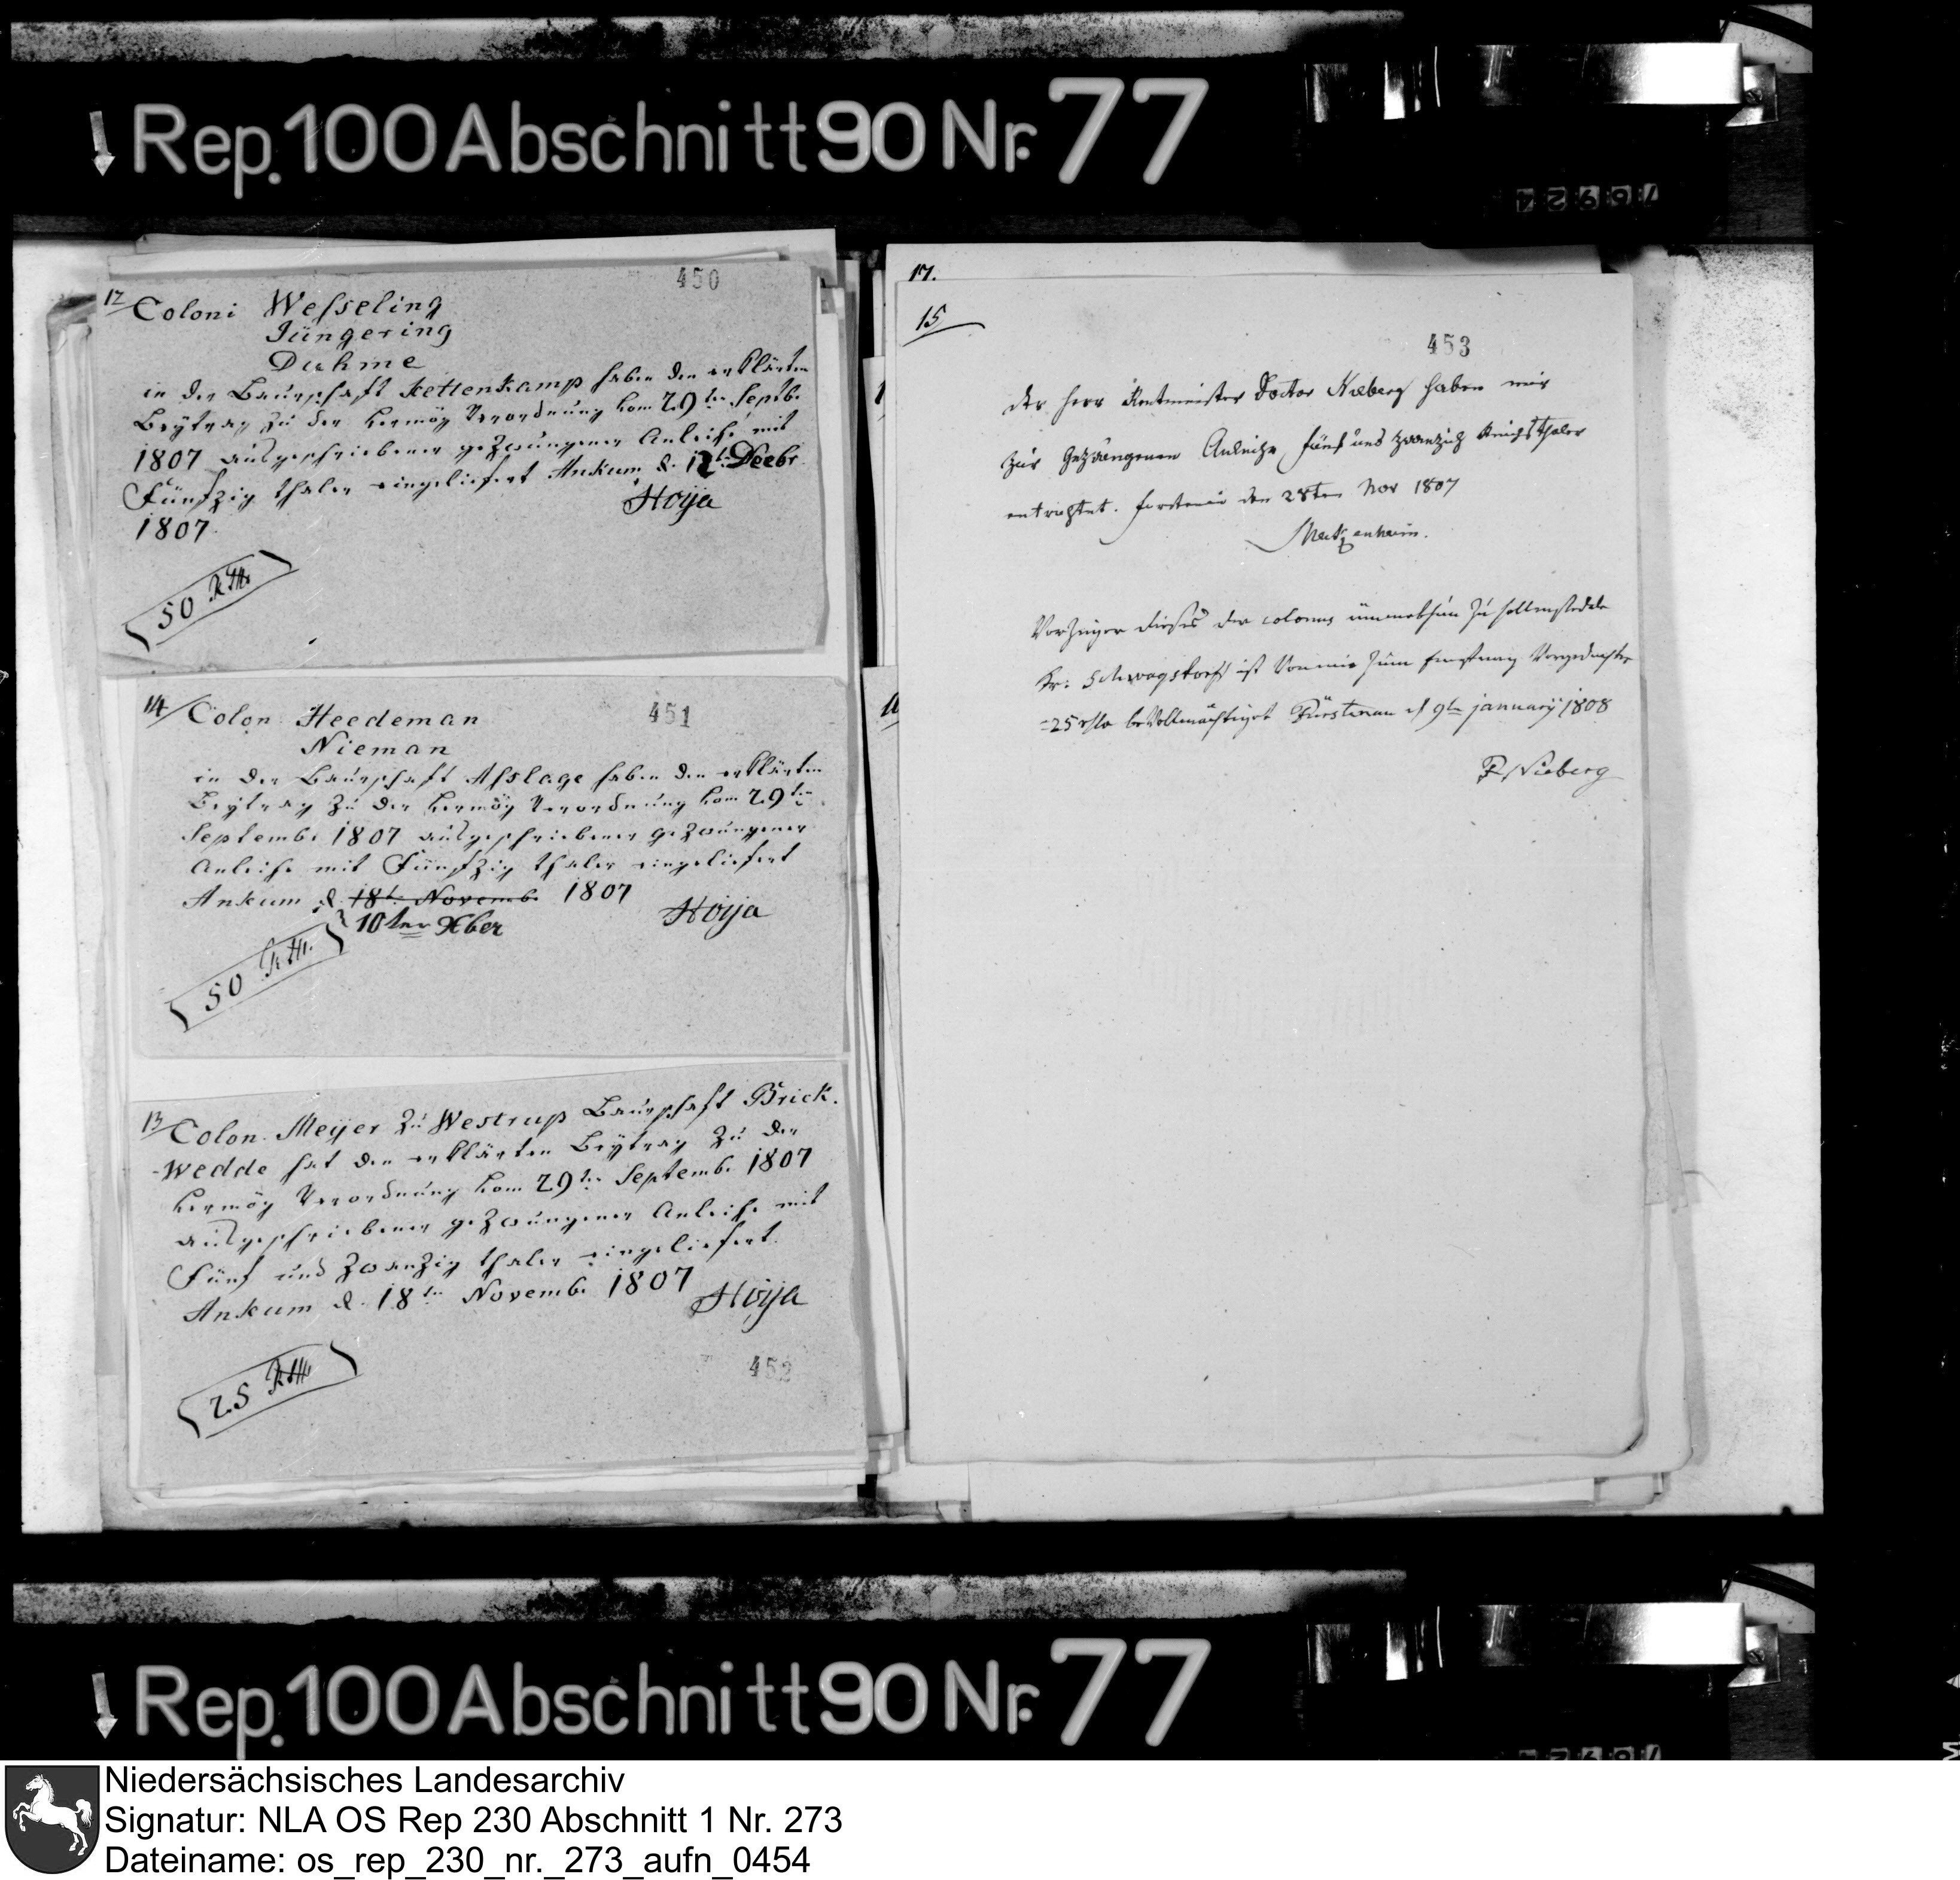 Rep. 100 Abschnitt 90 Nr. 77
450
12
Coloni Wesseling
Jüngering
Duhme
in der Baurschaft Kettenkamp haben den erklärten
Beytrag zu der vermög Verordnung vom 29ten Septb.
1807 ausgeschriebener gezwungener Anleihe mit
Fünfzig thaler eingeliefert Ankum d. 12t Decbr
1807. Hoija
50 Rthr
14
451
Colon. Heedeman
Nieman
in der Baurschaft Asslage haben den erklärten
Beytrag zu der vermög Verordnung vom 29ten
Septemb. 1807 ausgeschriebener gezwungener
Anleihe mit Fünfzig thaler eingeliefert
Ankum d. 18t. Novemb. 1807
10ten Xber Hoija
50 Rthr.
13
Colon. Meyer zu Westrup Baurschaft Brick-
-wedde hat den erklärten Beytrag zu der
vermög Verordnung vom 29te. Septemb. 1807
ausgeschriebener gezwungener Anleihe mit
Fünf und zwanzig thaler eingeliefert.
Ankum d. 18te. Novemb. 1807 Hoija
452
25 Rthr
17.
15
453
der Herr Rentmeister Doctor Nieberg haben mir
zur gezwungenen Anleihe fünf und zwanzig Reichsthaler
entrichtet. den 28ten Nov 1807
Vorzeiger dieses der colonus zu
Schwagstorf ist von mir zum
=25 rthr bevollmächtiget Fürstenau d 9te january 1808
Nieberg
Rep. 100 Abschnitt 90 Nr. 77
Niedersächsisches Landesarchiv
Signatur: NLA OS Rep 230 Abschnitt 1 Nr. 273
Dateiname: os_rep_230_nr._273_aufn_0454